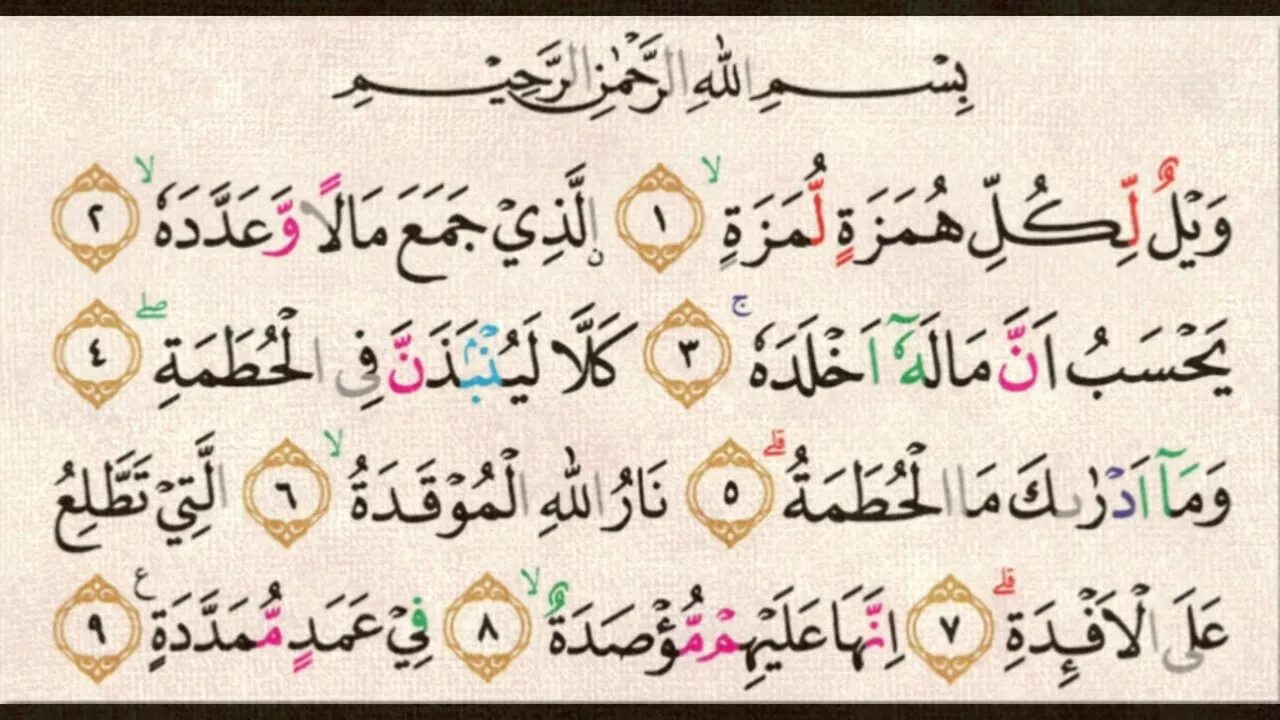 بِسْمِ اللهِ الرَّحْمٰنِ الرَّحِيْمِ
وَيْلٌ لِّكُلِّ هُمَزَةٍ لُّمَزَةٍ ۙ ١ ࣙالَّذِيْ جَمَعَ مَالًا وَّعَدَّدَهٗ ۙ ٢
يَحْسَبُ اَنَّ مَالَهٗٓ اَخْلَدَهٗ ۚ ٣ كَلَّا لَيُنْۢبَذَنَّ فِى الْحُطَمَةِ ۖ ٤
وَمَآ اَدْرٰىكَ مَا الْحُطَمَةُ ۗ ٥ نَارُ اللهِ الْمُوْقَدَةُ ۙ ٦ الَّتِيْ تَطَّلِعُ
عَلَى الْاَفْـِٕدَةِ ۗ ٧ اِنَّهَا عَلَيْهِمْ مُّؤْصَدَةٌ ۙ ٨ فِيْ عَمَدٍ مُّمَدَّدَةٍ ع ٩